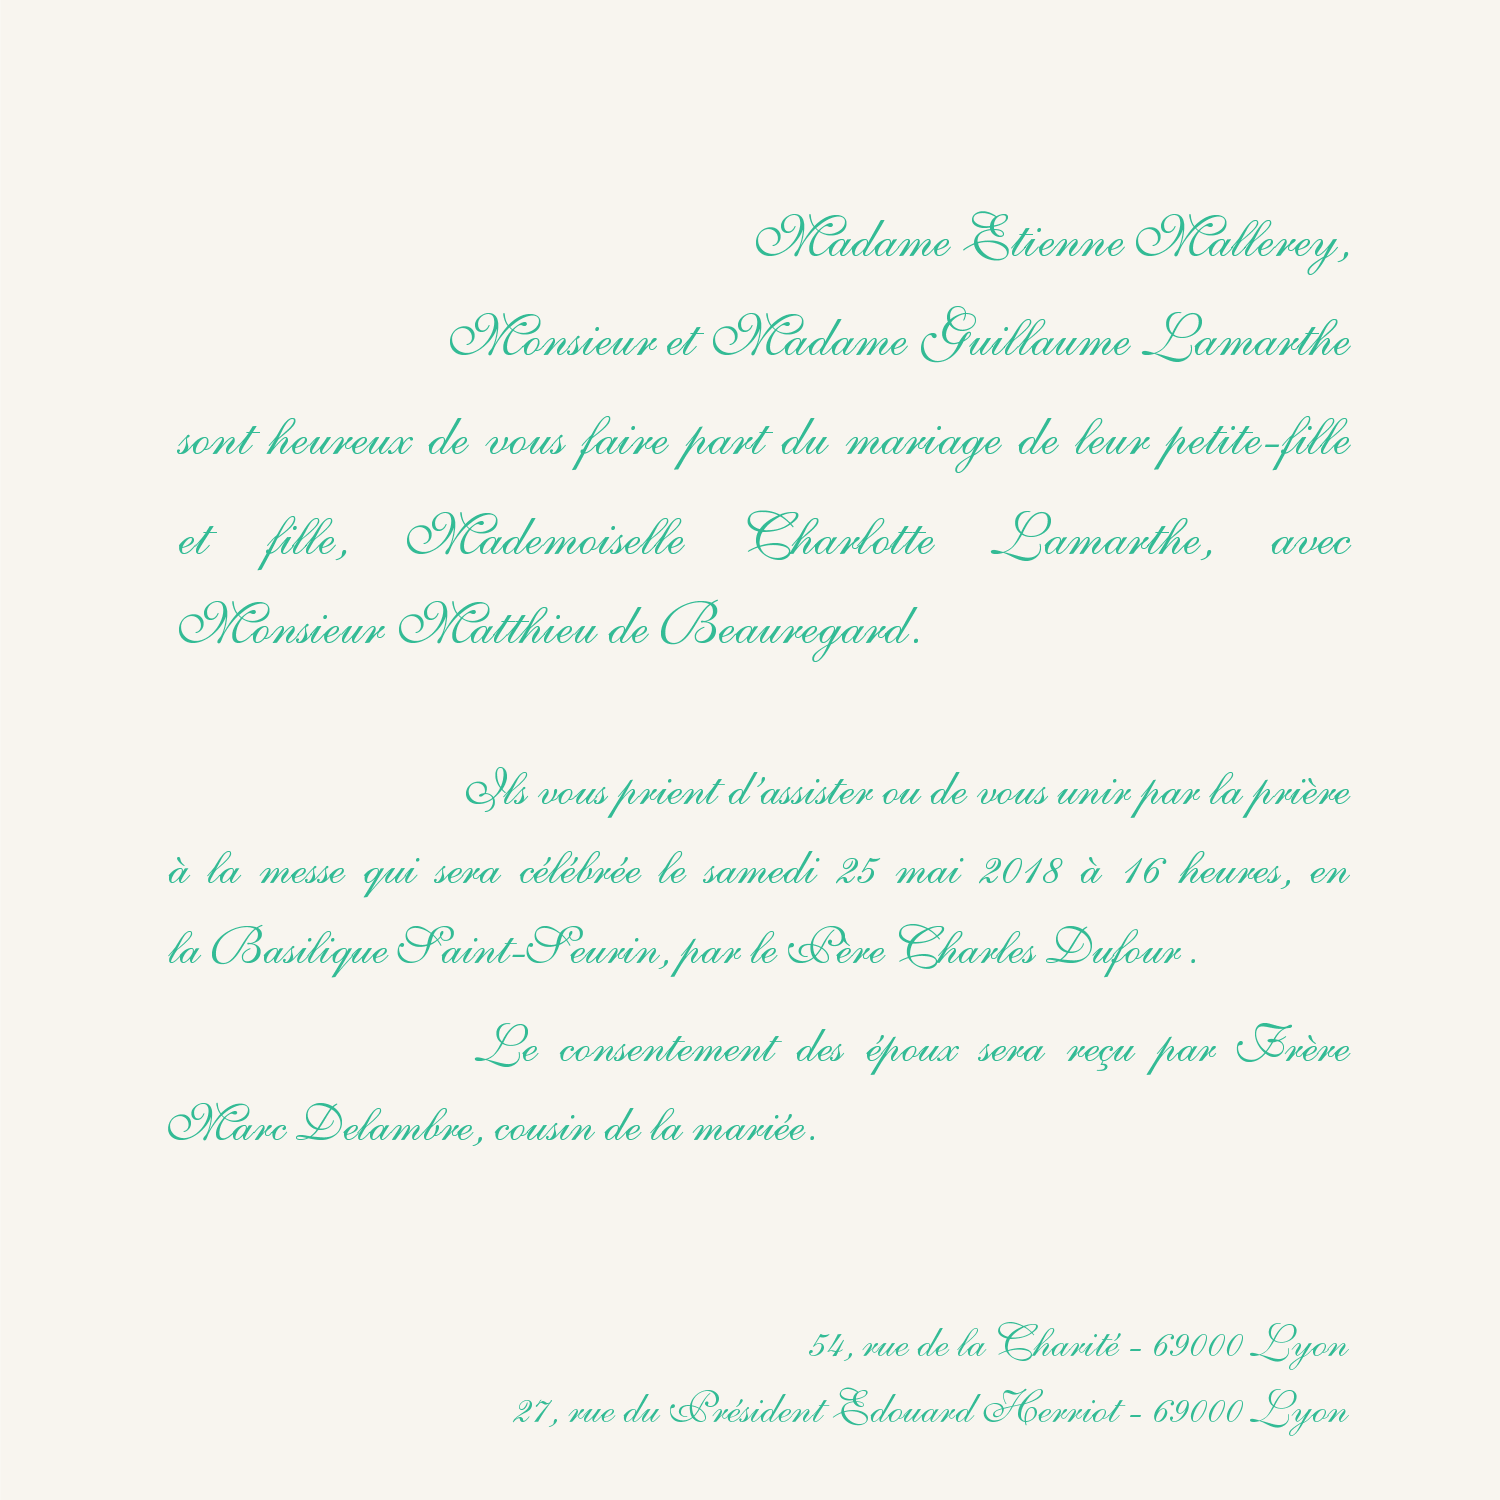 Madame Etienne Mallerey,
Monsieur et Madame Guillaume Lamarthe
sont heureux de vous faire part du mariage de leur petite-fille
et fille, Mademoiselle Charlotte Lamarthe, avec
Monsieur Matthieu de Beauregard.
Ils vous prient d'assister ou de vous unir par la prière
à la messe qui sera célébrée le samedi 25 mai 2018 à 16 heures, en
la Basilique Saint-Seurin, par le Père Charles Dufour .
Le consentement des époux sera reçu par Frère
Marc Delambre, cousin de la mariée.
54, rue de la Charité - 69000 Lyon
27, rue du Président Edouard Herriot - 69000 Lyon